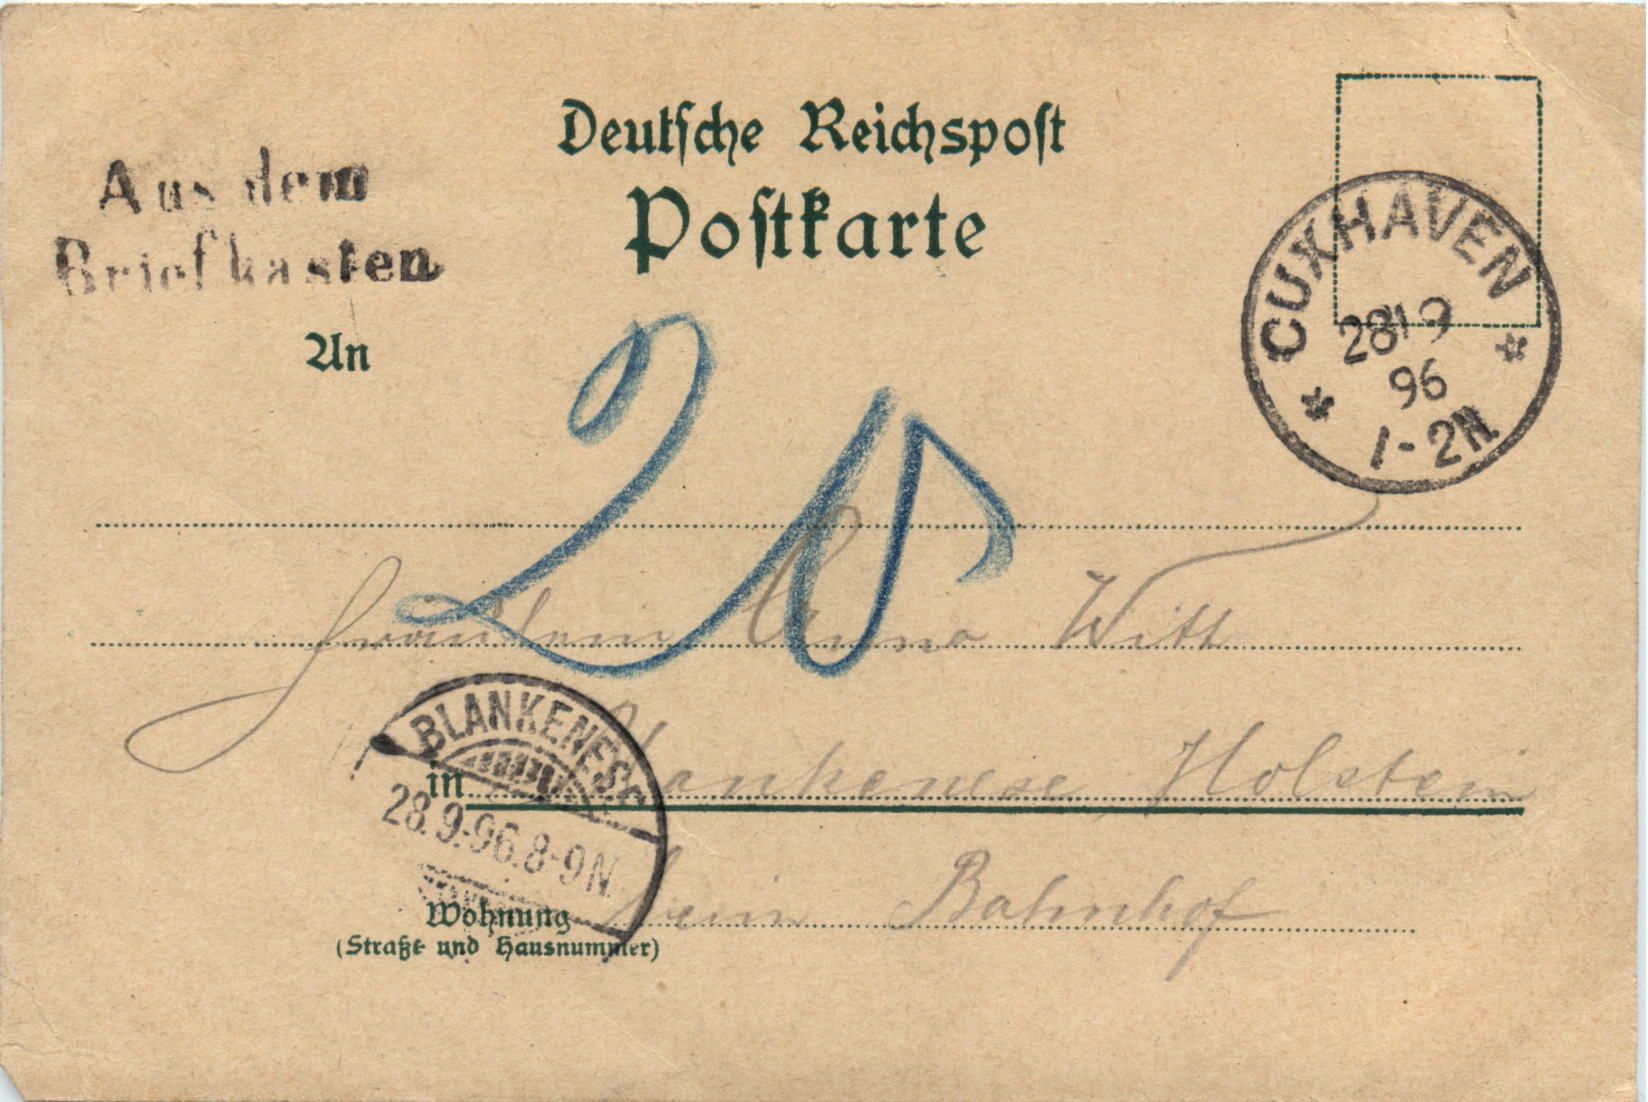 Deutsche Reichspost
Postkarte
Aus dem
Briefkasten
CUXHAVEN
28 9
96
1-2N.
An
20
Fräulein Anna Witt
BLANKENESE
28.9.96.8-9N
in Blankenese, Holstein
Wohnung beim Bahnhof
(Straße und Hausnummer)